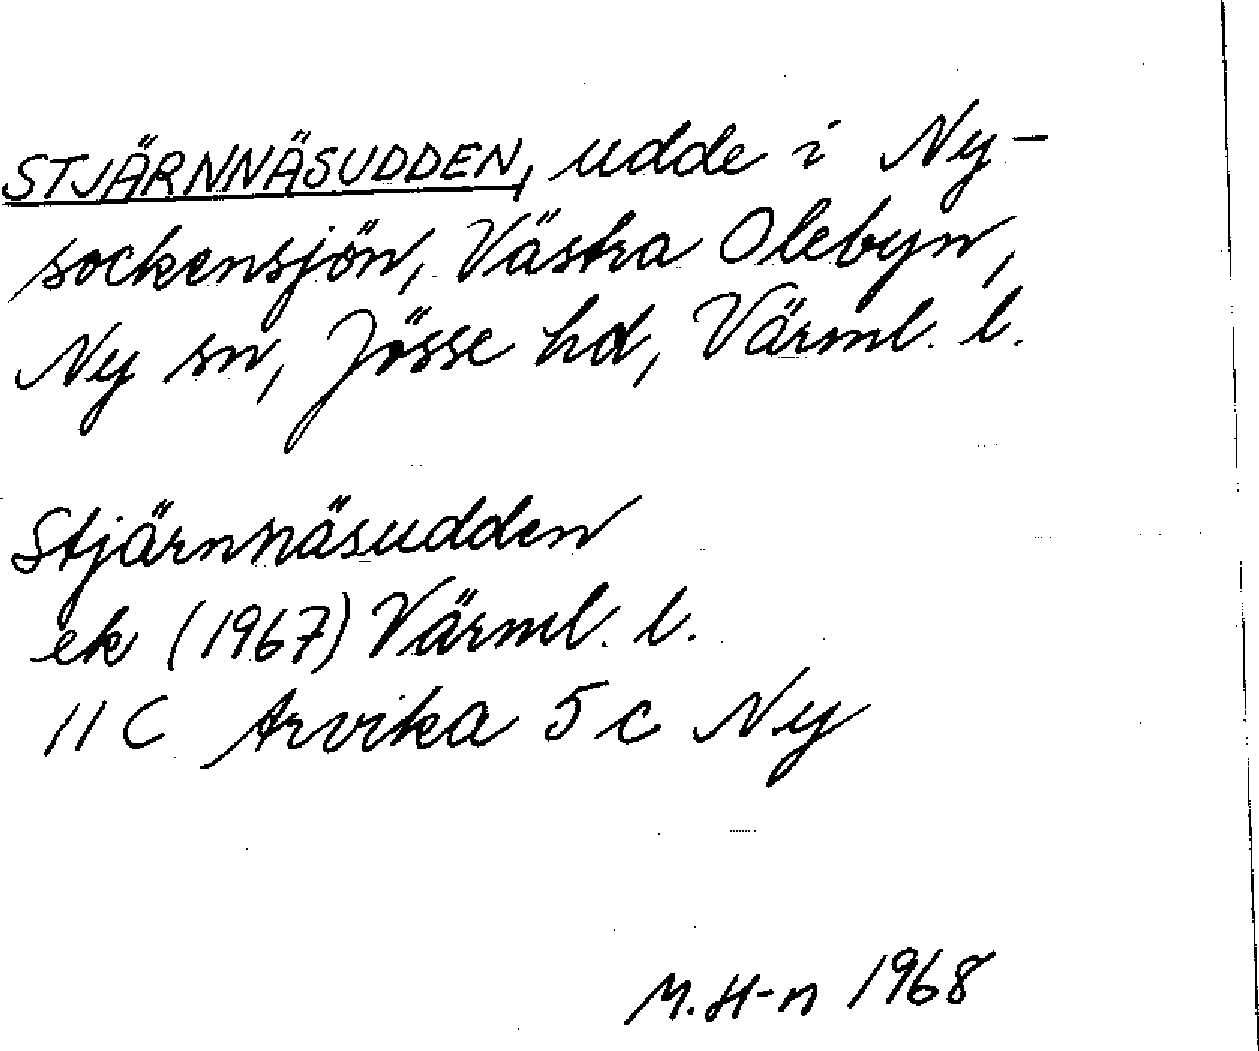 STJÄRNNÄSUDDEN, udde i Ny-
sockensjön, Västra Olebyn,
Ny sn, Jösse hd, Värml. l.
Stjärnnäsudden
ek (1967) Värml. l.
11 C Arvika 5 c Ny
M. H-n 1968